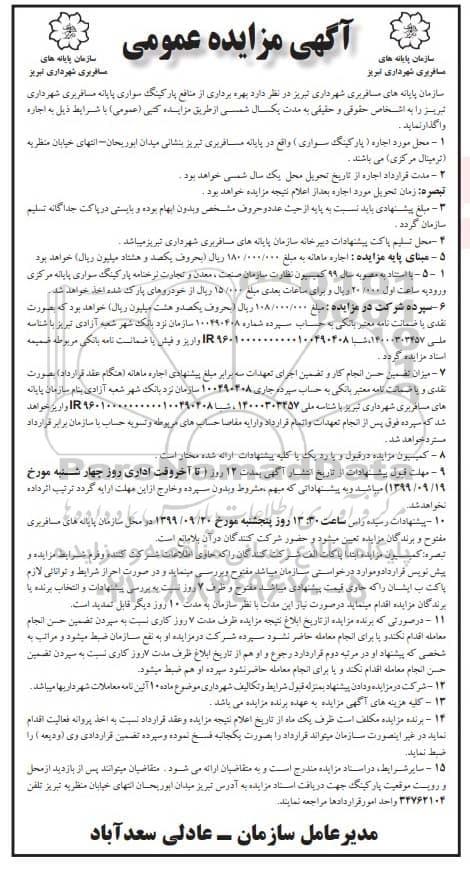 آگهی مزایده عمومی
سازمان پایانه های
مسافربری شهرداری تبریز
سازمان پایانه های
مسافربری شهرداری تبریز
سازمان پایانه های مسافربری شهرداری تبریز در نظر دارد بهره برداری از منافع پارکینگ سواری پایانه مسافربری شهرداری
تبریز را به اشخاص حقوقی و حقیقی به مدت یکسال شمسی ازطریق مزایده کتبی (عمومی) با شرایط ذیل به اجاره
واگذارنماید .
۱ – محل مورد اجاره ( پارکینگ سواری ) واقع در پایانه مسافربری تبریز بنشانی میدان ابوریحان–انتهای خیابان منظریه
(ترمینال مرکزی) می باشند .
۲ – مدت قرارداد اجاره از تاریخ تحویل محل یک سال شمسی خواهد بود .
تبصره: زمان تحویل مورد اجاره بعداز اعلام نتیجه مزایده خواهد بود .
۳ – مبلغ پیشنهادی باید نسبت به پایه ازحیث عددوحروف مشخص وبدون ابهام بوده و بایستی درپاکت جداگانه تسلیم
سازمان گردد .
۴ – محل تسلیم پاکت پیشنهادات دبیرخانه سازمان پایانه های مسافربری شهرداری تبریزمیباشد .
۵ – مبنای پایه مزایده : اجاره ماهانه به مبلغ ۱۸۰/۰۰۰/۰۰۰ ریال (بحروف یکصد و هشتاد میلیون ریال) خواهد بود
۱ – ۵ – با استناد به مصوبه سال ۹۹ کمیسیون نظارت سازمان صنعت ، معدن و تجارت نرخنامه پارکینگ سواری پایانه مرکزی
ورودیه ساعت اول ۲۰/۰۰۰ ریال و برای ساعات بعدی مبلغ ۱۵/۰۰۰ ریال از خودروهای پارک شده اخذ خواهد شد .
۶ – سپرده شرکت در مزایده : مبلغ ۱۰۸/۰۰۰/۰۰۰ ریال (بحروف یکصدو هشت میلیون ریال) خواهد بود که بصورت
نقدی یا ضمانت نامه معتبر بانکی به حساب سپرده شماره ۱۰۰۴۹۰۴۰۸ سازمان نزد بانک شهر شعبه آزادی تبریز با شناسه
ملی ۱۴۰۰۰۳۰۳۴۵۷ ،شبا IR ۹۶۰۱۰۰۰۰۰۰۰۰۰۱۰۰۴۹۰۴۰۸ واریز و فیش یا ضمانت نامه بانکی مربوطه ضمیمه
اسناد مزایده گردد .
۷ – میزان تضمین حسن انجام کار و تضمین اجرای تعهدات سه برابر مبلغ پیشنهادی اجاره ماهانه (هنگام عقد قرارداد) بصورت
نقدی و یا ضمانت نامه معتبر بانکی به حساب سپرده جاری ۱۰۰۴۹۰۴۰۸ سازمان نزد بانک شهر شعبه آزادی بنام سازمان پایانه
های مسافربری تبریز با شناسه ملی ۱۴۰۰۰۳۰۳۴۵۷ ، شبا IR ۹۶۰۱۰۰۰۰۰۰۰۰۰۱۰۰۴۹۰۴۰۸ واریزخواهد
شد که سپرده فوق پس از انجام تعهدات واتمام قرارداد وارایه مفاصا حساب های مربوطه وتسویه حساب با سازمان برابر قرارداد
مستردخواهد شد.
۸ – کمیسیون مزایده درقبول و یا رد یک یا کلیه پیشنهادات ارائه شده مختار است .
۹ – مهلت قبول پیشنهادات از تاریخ انتشار آگهی بمدت ۱۲ روز ( تا آخروقت اداری روز چهار شنبه مورخ
۱۳۹۹/۰۹/۱۹) میباشد وبه پیشنهاداتی که مبهم ،مشروط وبدون سپرده وخارج ازاین مهلت ارایه گردد ترتیب اثرداده
نخواهدشد.
۱۰ – پیشنهادات رسیده راس ساعت ۱۳:۳۰ روز پنجشنبه مورخ ۱۳۹۹/۰۹/۲۰ در محل سازمان پایانه های مسافربری
مفتوح و برندگان مزایده تعیین میشود و حضور شرکت کنندگان درآن بلامانع است .
تبصره: کمیسیون مزایده ابتدا پاکات الف شرکت کنندگان راکه حاوی اطلاعات شرکت کننده وفرم شرایط مزایده و
پیش نویس قراردادوموارد درخواستی سازمان میباشد مفتوح وبررسی مینماید و در صورت احراز شرایط و توانائی لازم
پاکت ب ایشان راکه حاوی قیمت پیشنهادی میباشد مفتوح و ظرف ۷ روز نسبت به بررسی پیشنهادات و انتخاب برنده یا
برندگان مزایده اقدام مینماید درصورت نیاز این مدت با نظر سازمان به مدت ۱۰ روز دیگر قابل تمدید است.
۱۱ – درصورتی که برنده مزایده ازتاریخ ابلاغ نتیجه مزایده ظرف مدت ۷ روز کاری نسبت به سپردن تضمین حسن انجام
معامله اقدام نکند و یا برای انجام معامله حاضر نشود سپرده شرکت درمزایده او به نفع سازمان ضبط میشود و مراتب به
شخصی که پیشنهاد او در مرتبه دوم قراردارد رجوع و او هم از تاریخ ابلاغ ظرف مدت ۷روز کاری نسبت به سپردن تضمین
حسن انجام معامله اقدام نکند و یا برای انجام معامله حاضرنشود سپرده او هم ضبط میشود.
۱۲ – شرکت درمزایده ودادن پیشنهاد بمنزله قبول شرایط وتکالیف شهرداری موضوع ماده ۱۰ آئین نامه معاملات شهرداریها میباشد.
۱۳ – کلیه هزینه های آگهی مزایده به عهده برنده مزایده می باشد .
۱۴ – برنده مزایده مکلف است ظرف یک ماه از تاریخ اعلام نتیجه مزایده وعقد قرارداد نسبت به اخذ پروانه فعالیت اقدام
نماید در غیر اینصورت سازمان میتواند قرارداد را بصورت یکجانبه فسخ نموده وسپرده تضمین قراردادی وی (ودیعه ) را
ضبط نماید.
۱۵ – سایرشرایط، دراسناد مزایده مندرج است و به متقاضیان ارائه می شود . متقاضیان میتوانند پس از بازدید ازمحل
و رویت موقعیت پارکینگ جهت دریافت اسناد مزایده به آدرس تبریز میدان ابوریحان انتهای خیابان منظریه تبریز تلفن
۳۴۷۶۲۱۰۴ واحد امورقراردادها مراجعه نمایند.
مدیرعامل سازمان – عادلی سعدآباد